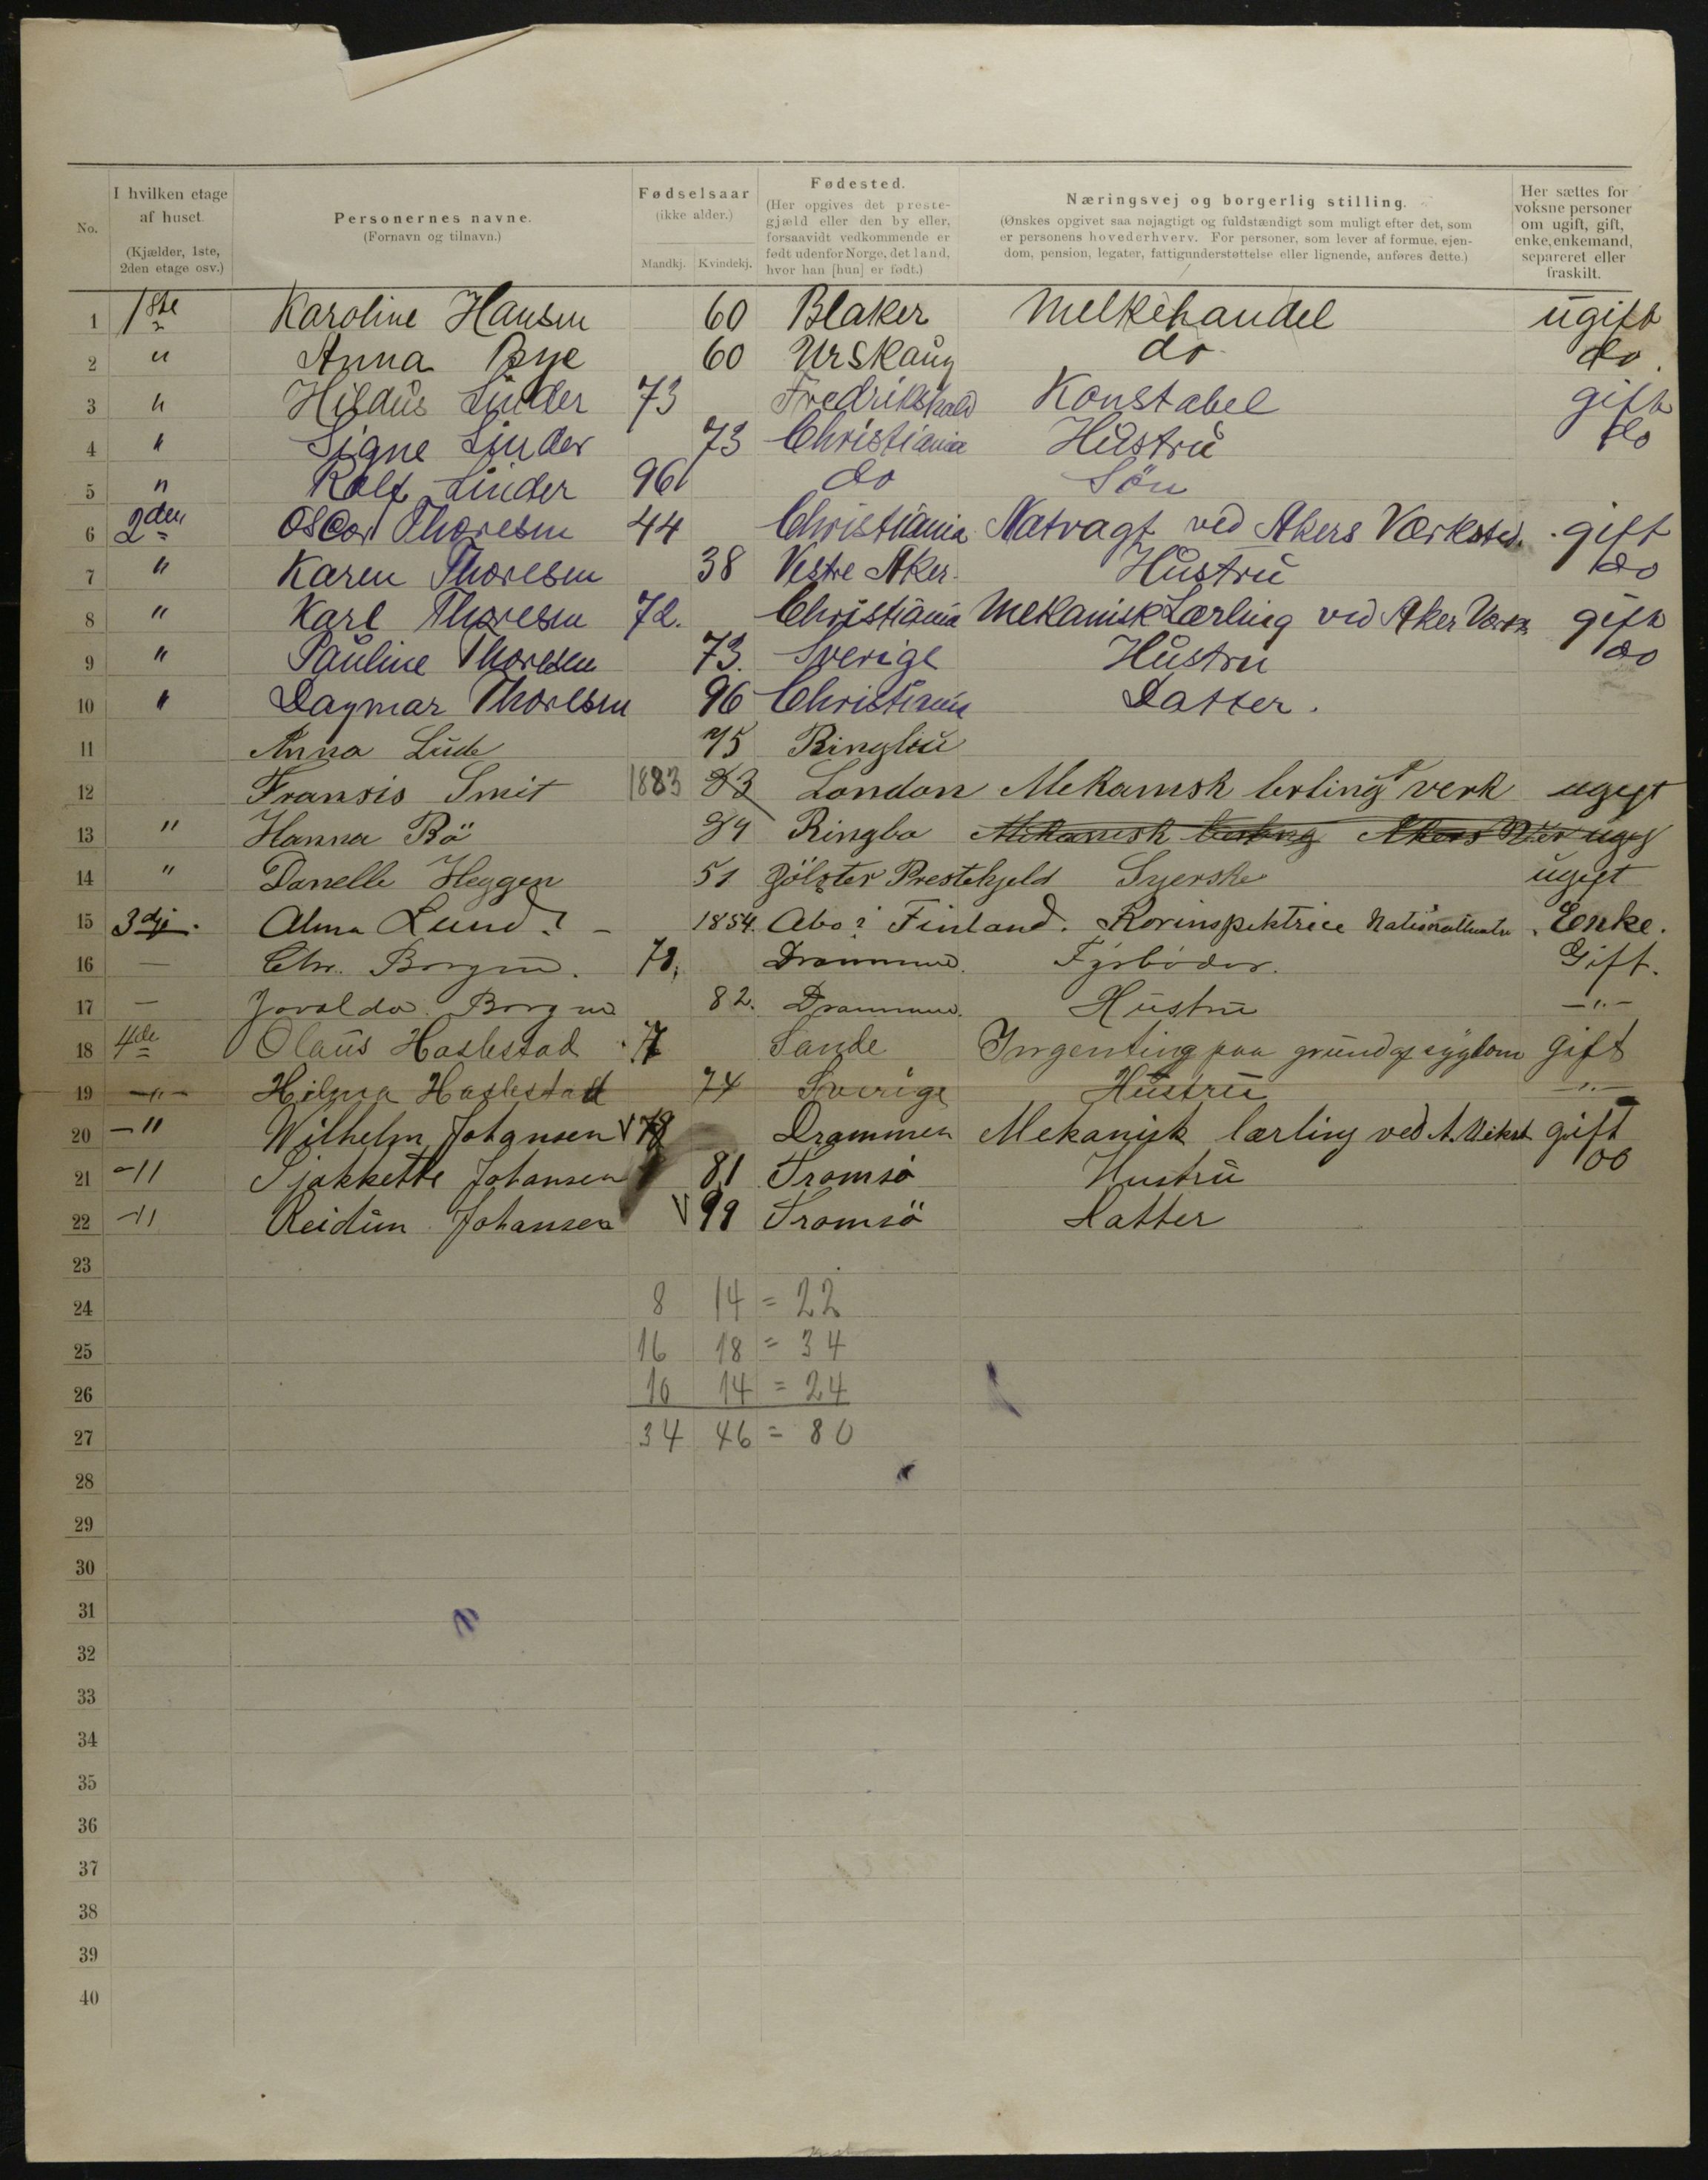 No.
I hvilken etage af huset. (Kjælder, 1ste, 2den etage osv.)
Personernes navne. (Fornavn og tilnavn.)
Fødselsaar (ikke alder.) Mandkj. Kvindekj.
Fødested. (Her opgives det prestegjæld eller den by eller, forsaavidt vedkommende er født udenfor Norge, det land, hvor han [hun] er født.)
Næringsvej og borgerlig stilling. (Ønskes opgivet saa nøjagtigt og fuldstændigt som muligt efter det, som er personens hovederhverv. For personer, som lever af formue, ejendom, pension, legater, fattigunderstøttelse eller lignende, anføres dette.)
Her sættes for voksne personer om ugift, gift, enke, enkemand, separeret eller fraskilt.
1 1ste Karoline Hansen 60 Blaker Melkehandel ugift
2 " Anna Bye 60 Urskaug do do.
3 " Hildus Linder 73 Fredrikshald Konstabel gift
4 " Signe Linder 73 Christiania Hustru do
5 " Rolf Linder 96 do Søn
6 2den Oscar Thoresen 44 Christiania Natvagt ved Akers Værksted. gift
7 " Karen Thoresen 38 Vestre Aker. Hustru do
8 " Karl Thoresen 72. Christiania Mekanisk Lærling ved Aker Værk gift
9 " Pauline Thoresen 73. Sverige Hustru do
10 " Dagmar Thoresen 96 Christiania Datter.
11 Anna Lude 75 Ringbu
12 Fransis Smit 1883 83 London Mekanisk lerling verk ugift
13 " Hanna Bö Ringbo Mekanisk lerling Akers ugif
14 " Danelle Heggen 51 Jölster Prestekjeld Syerske ugift
15 3dje. Alma Lund. 1854. Abo i Finland. Korinspektrice Nationaltheatr. Enke.
16 — Chr. Borgen. Drammen. Fyrbøder. Gift.
17 — Borgen 82. Drammen. Hustru —"—
18 4de Olaus Haslestad Sande Ingenting paa grund af sygdom gift
19 —"— Hilma Haslestad 74 Sverige Hustru —"—
20 —" Wilhelm Johansen 78 Drammen Mekanisk lærling ved A. Vekst gift
21 —" Sjakkette Johansen 81 Tromsö Hustru do
22 —" Reidun Johansen 99 Tromsö Datter
23
24 8 14 = 22
25 16 18 = 34
26 10 14 = 24
27 34 46 = 80
28
29
30
31
32
33
34
35
36
37
38
39
40